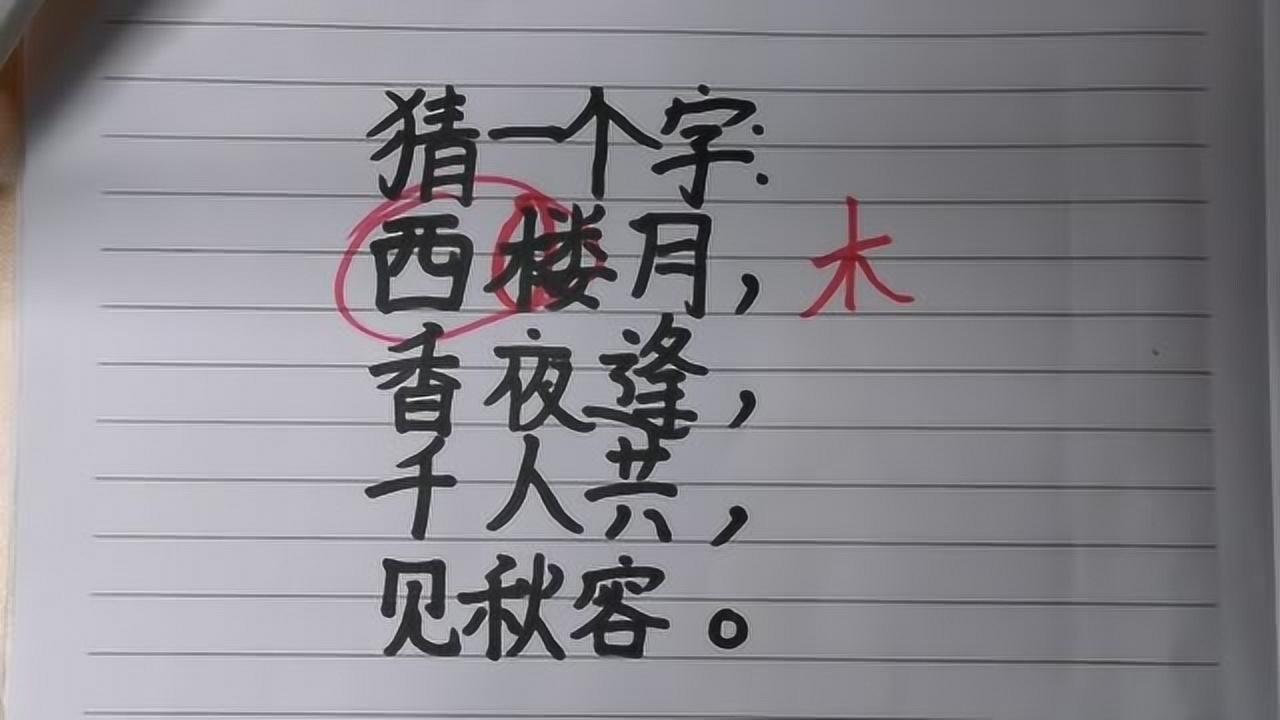 猜一个字:
西楼月, 木
香夜逢,
千人共,
见秋客。